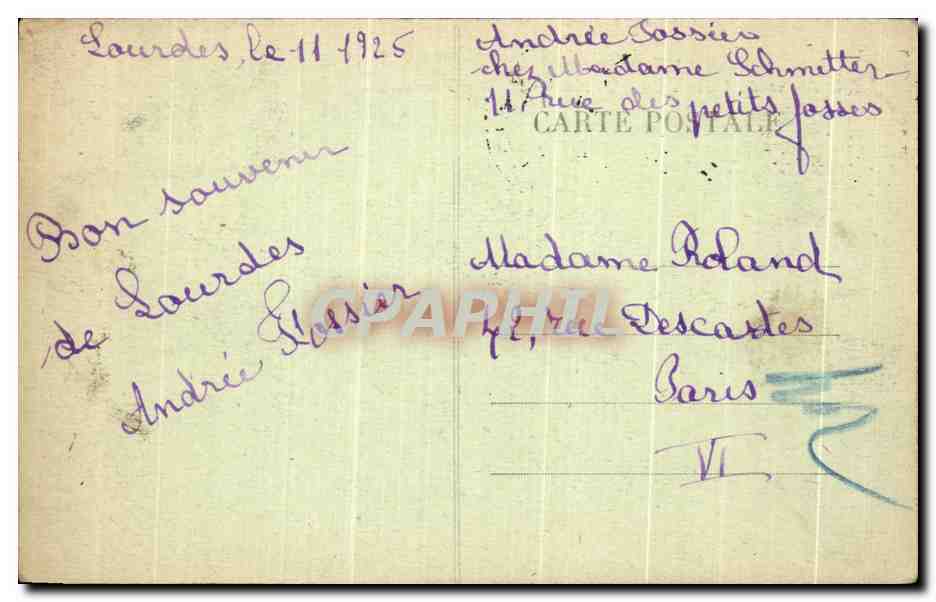 Lourdes, le 11 1925
Bon souvenir
de Lourdes
Andrée Fossier
Andrée Fossier
chez Madame Schmetter
11 rue des petits fosses
CARTE POSTALE
Madame Roland
42, rue Descartes
Paris
VI
CPAPHIL